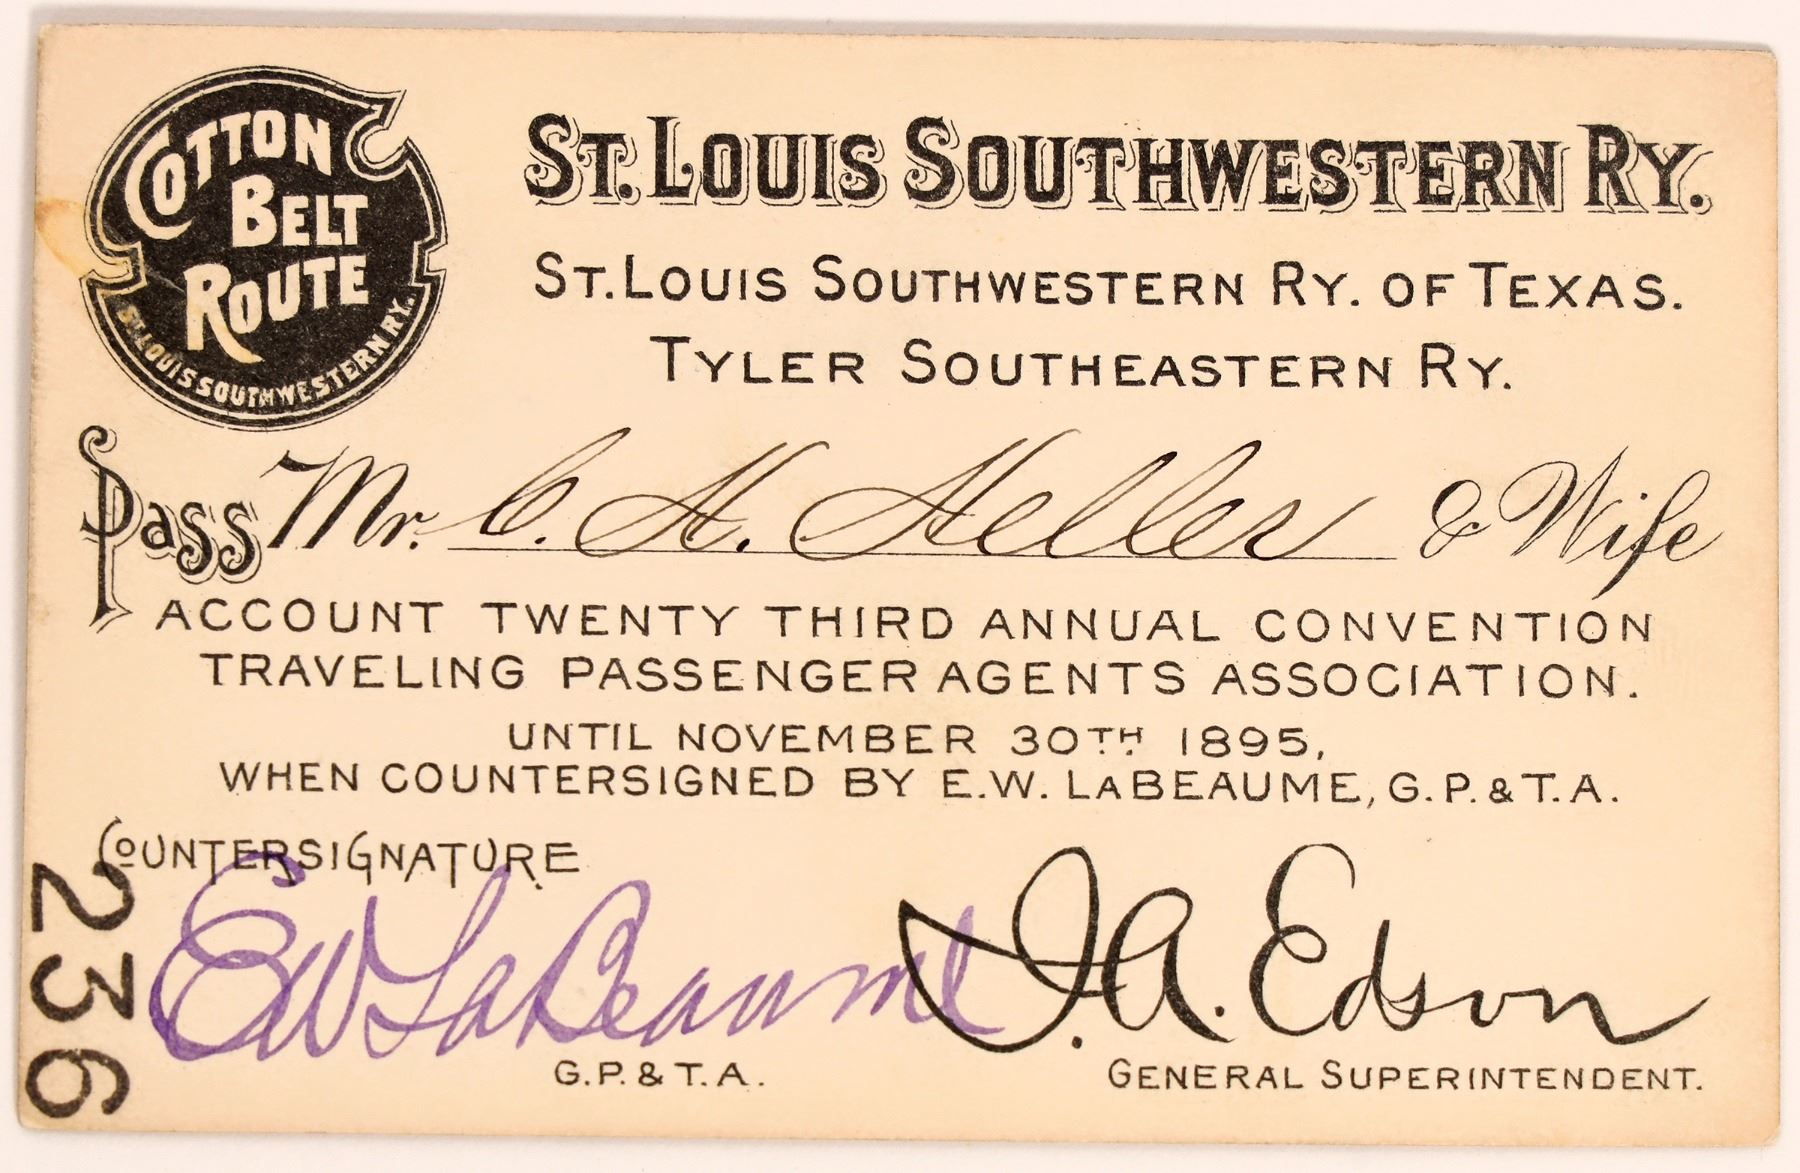 COTTON
BELT
ROUTE
ST. LOUIS SOUTHWESTERN RY.
ST. LOUIS SOUTHWESTERN RY.
ST. LOUIS SOUTHWESTERN RY. OF TEXAS.
TYLER SOUTHEASTERN RY.
Pass Mr. C. H. Heller & Wife
ACCOUNT TWENTY THIRD ANNUAL CONVENTION
TRAVELING PASSENGER AGENTS ASSOCIATION.
UNTIL NOVEMBER 30TH 1895,
WHEN COUNTERSIGNED BY E.W. LABEAUME, G.P. & T.A.
COUNTERSIGNATURE
236
EW LaBeaume
J.A. Edson
G.P. & T.A.
GENERAL SUPERINTENDENT.